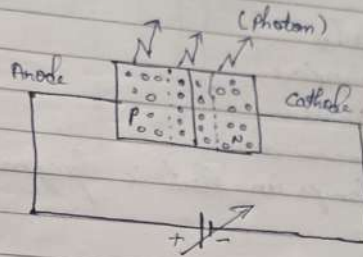 (Photon)
Anode
Cathode
P
N
+ -